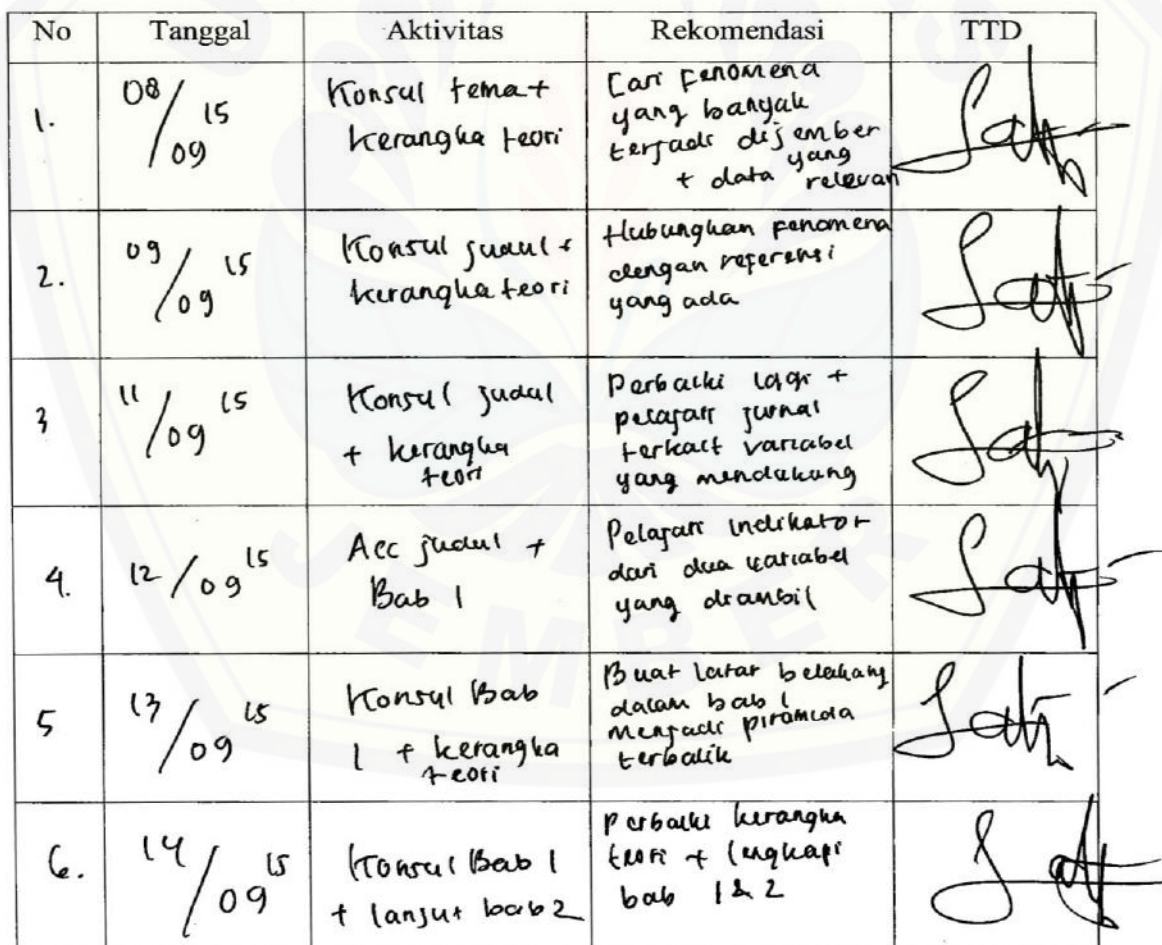 No Tanggal Aktivitas Rekomendasi TTD
1. 08/09 15
Konsul tema +
kerangka teori
Cari fenomena
yang banyak
terjadi dijember
+ data yang
relevan
2. 09/09 15
Konsul judul +
kerangka teori
Hubungkan fenomena
dengan referensi
yang ada
3 11/09 15
Konsul judul
+ kerangka
teori
Perbaiki lagi +
pelajari jurnal
terkait variabel
yang mendukung
4. 12/09 15
Acc judul +
Bab 1
Pelajari indikator
dari dua variabel
yang diambil
5 13/09 15
Konsul Bab
1 + kerangka
teori
Buat latar belakang
dalam bab 1
menjadi piramida
terbalik
6. 14/09 15
Konsul Bab 1
+ lanjut bab 2
Perbaiki kerangka
teori + lengkapi
bab 1 & 2
JEMBER